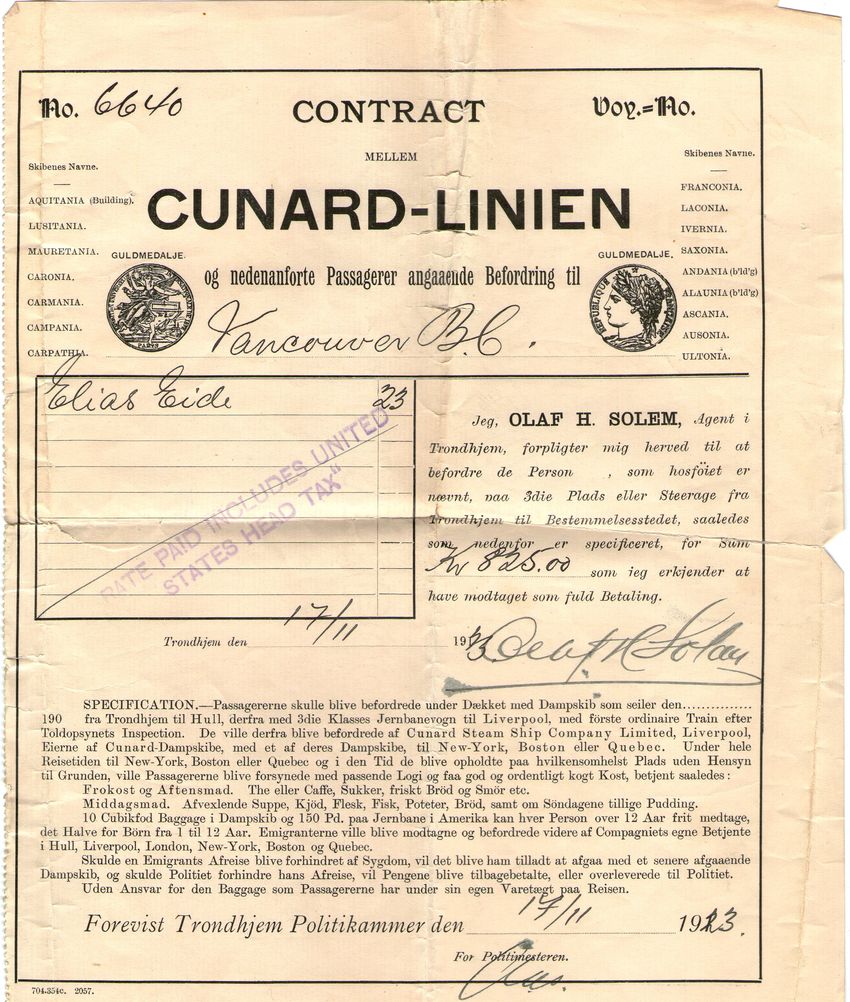 No. 6640
CONTRACT
Voy.=No.
MELLEM
Skibenes Navne.
AQUITANIA (Building).
LUSITANIA.
MAURETANIA.
CARONIA.
CARMANIA.
CAMPANIA.
CARPATHIA.
CUNARD-LINIEN
Skibenes Navne.
FRANCONIA.
LACONIA.
IVERNIA.
SAXONIA.
ANDANIA (b'ld'g)
ALAUNIA (b'ld'g)
ASCANIA.
AUSONIA.
ULTONIA.
GULDMEDALJE.
GULDMEDALJE.
PARIS
REPUBLIQUE FRANÇAISE
og nedenanforte Passagerer angaaende Befordring til
Vancouver B.C.
Elias Eide 23
RATE PAID INCLUDES UNITED
STATES HEAD TAX"
Jeg, OLAF H. SOLEM, Agent i
Trondhjem, forpligter mig herved til at
befordre de Person , som hosföiet er
nævnt, paa 3die Plads eller Steerage fra
Trondhjem til Bestemmelsesstedet, saaledes
som nedenfor er specificeret, for Sum
Kr 825.00 som jeg erkjender at
have modtaget som fuld Betaling.
Trondhjem den 17/11 1913 Olaf H Solem
SPECIFICATION.—Passagererne skulle blive befordrede under Dækket med Dampskib som seiler den...............
190 fra Trondhjem til Hull, derfra med 3die Klasses Jernbanevogn til Liverpool, med förste ordinaire Train efter
Toldopsynets Inspection. De ville derfra blive befordrede af Cunard Steam Ship Company Limited, Liverpool,
Eierne af Cunard-Dampskibe, med et af deres Dampskibe, til New-York, Boston eller Quebec. Under hele
Reisetiden til New-York, Boston eller Quebec og i den Tid de blive opholdte paa hvilkensomhelst Plads uden Hensyn
til Grunden, ville Passagererne blive forsynede med passende Logi og faa god og ordentligt kogt Kost, betjent saaledes:
Frokost og Aftensmad. The eller Caffe, Sukker, friskt Bröd og Smör etc.
Middagsmad. Afvexlende Suppe, Kjöd, Flesk, Fisk, Poteter, Bröd, samt om Söndagene tillige Pudding.
10 Cubikfod Baggage i Dampskib og 150 Pd. paa Jernbane i Amerika kan hver Person over 12 Aar frit medtage,
det Halve for Börn fra 1 til 12 Aar. Emigranterne ville blive modtagne og befordrede videre af Compagniets egne Betjente
i Hull, Liverpool, London, New-York, Boston og Quebec.
Skulde en Emigrants Afreise blive forhindret af Sygdom, vil det blive ham tilladt at afgaa med et senere afgaaende
Dampskib, og skulde Politiet forhindre hans Afreise, vil Pengene blive tilbagebetalte, eller overleverede til Politiet.
Uden Ansvar for den Baggage som Passagererne har under sin egen Varetægt paa Reisen.
Forevist Trondhjem Politikammer den 17/11 1913.
For Politimesteren.
704.354c. 2057.